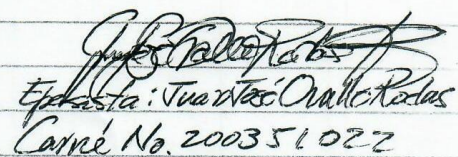 Epesista: Juan José Ovalle Rodas
Carné No. 200351022